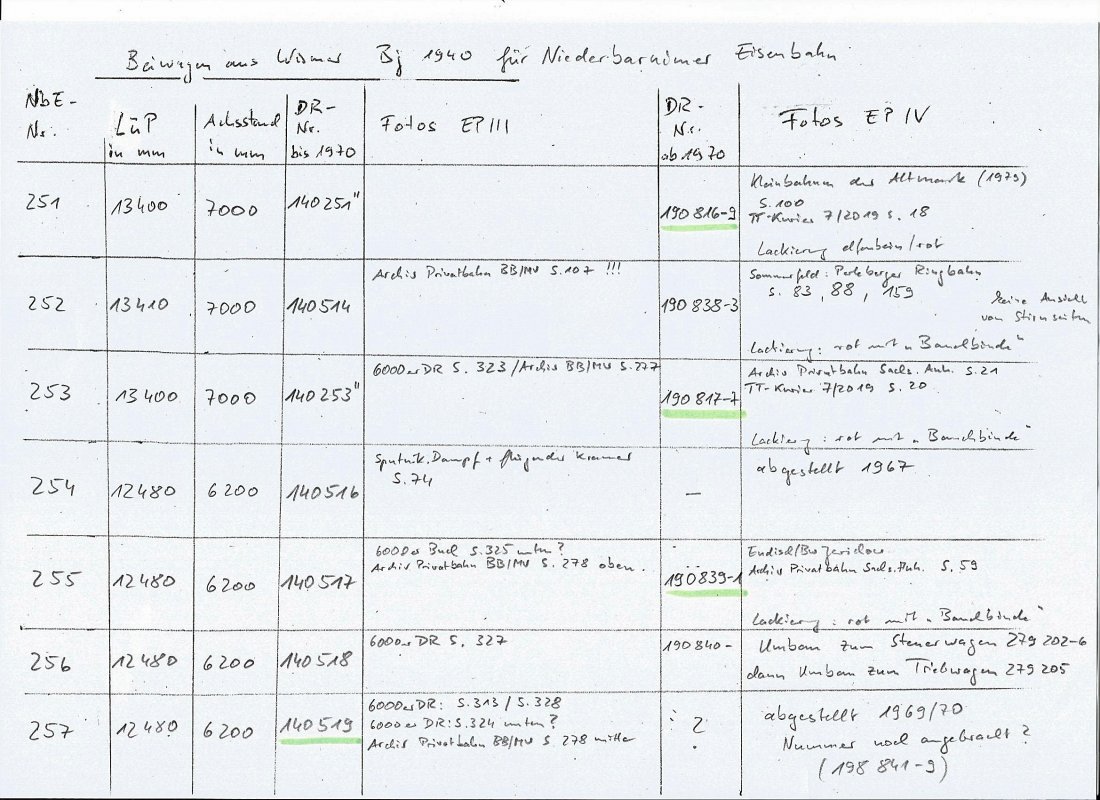 Beiwagen aus Wismar Bj 1940 für Niederbarnimer Eisenbahn
NbE-Nr. LüP in mm Achsstand in mm DR-Nr. bis 1970 Fotos EP III DR-Nr. ab 1970 Fotos EP IV
251 13400 7000 140 251" 190 816-9 Kleinbahnen der Altmark (1979)
S. 100
TT-Kurier 7/2019 S. 18
Lackierung elfenbein/rot
252 13410 7000 140 514 Archiv Privatbahn BB/MV S. 107 !!! 190 838-3 Sommerfeld: Perleberger Ringbahn
S. 83, 88, 159
keine Ansicht
von Stirnseiten
Lackierung: rot mit "Bauchbinde"
253 13400 7000 140 253" 6000er DR S. 323 / Archiv BB/MV S. 277 190 817-7 Archiv Privatbahn Sachs. Anh. S. 21
TT-Kurier 7/2019 S. 20
Lackierg: rot mit "Bauchbinde"
254 12480 6200 140 516 Sputnik, Dampf + fliegender Kramer
S. 74
— abgestellt 1967
255 12480 6200 140 517 6000er Buch S. 325 unten?
Archiv Privatbahn BB/MV S. 278 oben.
190 839-1 Endisch/Bw Jerichow
Archiv Privatbahn Sachs. Anh. S. 59
Lackierung: rot mit "Bauchbinde"
256 12480 6200 140 518 6000er DR S. 327 190 840- Umbau zum Steuerwagen 279 202-6
dann Umbau zum Triebwagen 279 205
257 12480 6200 140 519 6000er DR: S. 313 / S. 328
6000er DR: S. 324 unten?
Archiv Privatbahn BB/MV S. 278 mitte
? abgestellt 1969/70
Nummer noch angebracht?
(198 841-9)